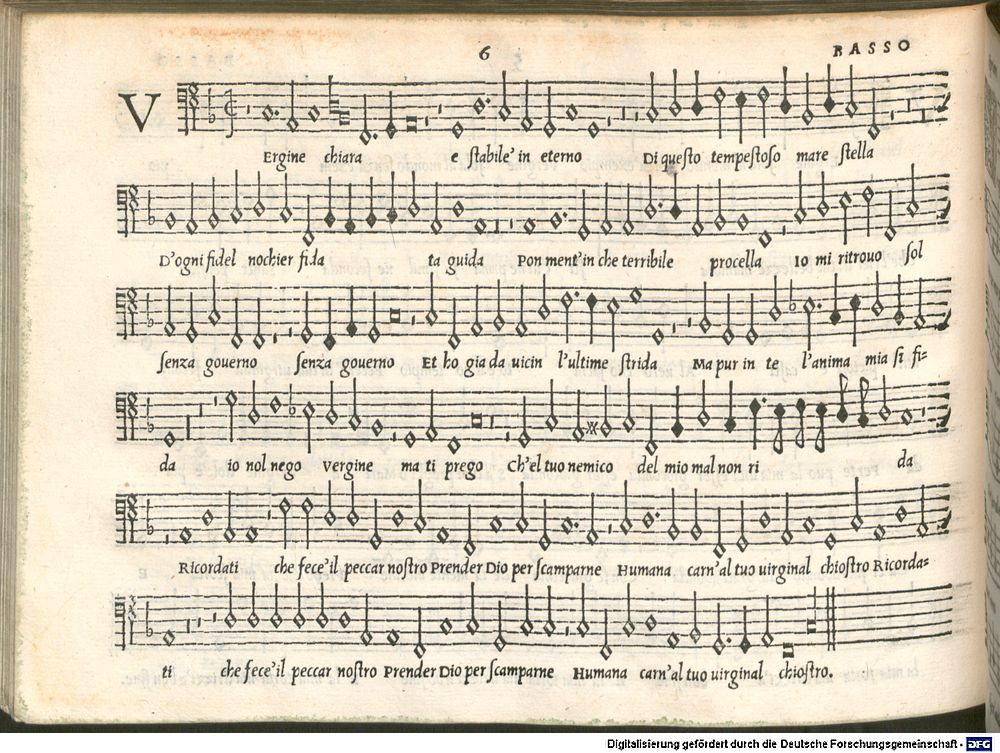 6
BASSO
VErgine chiara e ſtabile' in eterno Di queſto tempeſtoſo mare ſtella
D'ogni fidel nochier fida ta guida Pon ment'in che terribile procella Io mi ritrouo ſol
ſenza gouerno ſenza gouerno Et ho gia da uicin l'ultime ſtrida Ma pur in te l'anima mia ſi fi-
da io nol nego vergine ma ti prego Ch'el tuo nemico del mio mal non ri da
Ricordati che fece'il peccar noſtro Prender Dio per ſcamparne Humana carn'al tuo uirginal chioſtro Ricorda-
ti che fece'il peccar noſtro Prender Dio per ſcamparne Humana carn'al tuo uirginal chioſtro.
Digitalisierung gefördert durch die Deutsche Forschungsgemeinschaft - DFG